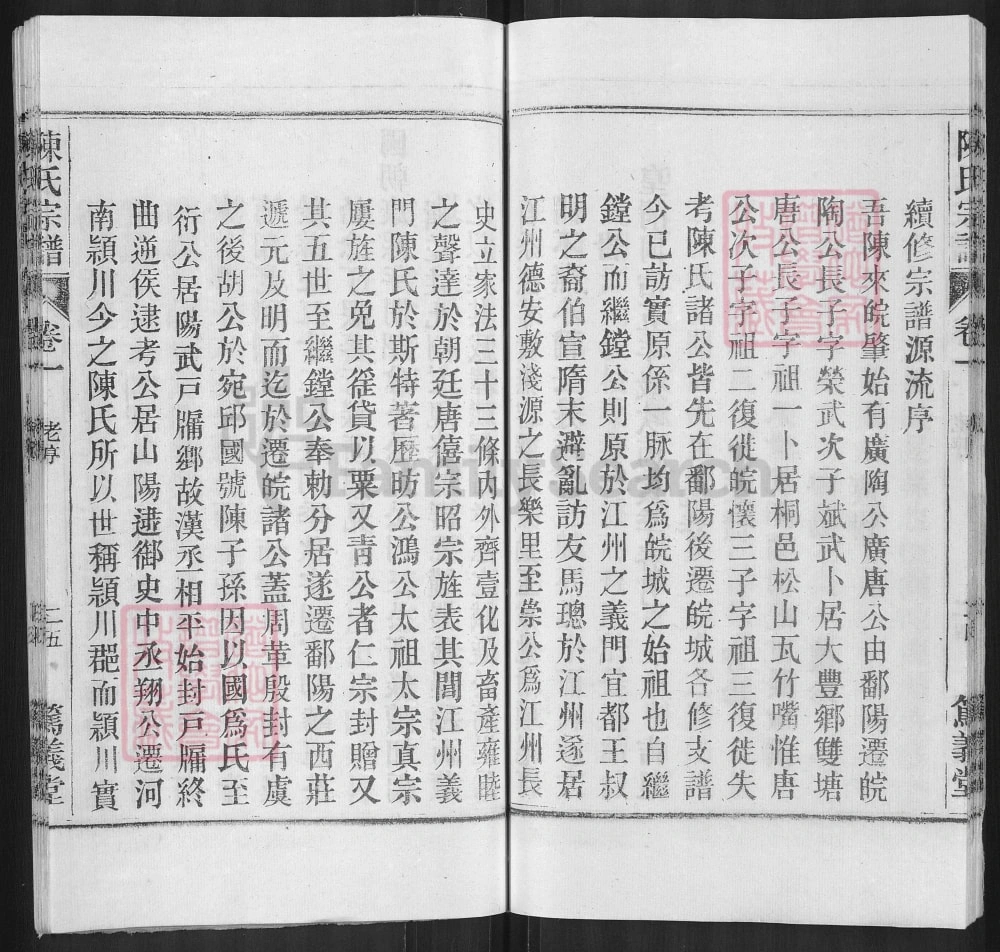 續修宗譜源流序
吾陳來皖肇始有廣陶公廣唐公由鄱陽遷皖
陶公長子字榮武次子斌武卜居大豐鄉雙塘
唐公長子字祖一卜居桐邑松山瓦竹嘴惟唐
公次子字祖二復徙皖懷三子字祖三復徙失
考陳氏諸公皆先在鄱陽後遷皖城各修支譜
今已訪實原係一脉均為皖城之始祖也自繼
鏜公而繼鏜公則原於江州之義門宜都王叔
明之裔伯宣隋末避亂訪友馬璁於江州遂居
江州德安敷淺源之長樂里至崇公為江州長
史立家法三十三條內外齊壹化及畜產雍睦
之聲達於朝廷唐僖宗昭宗旌表其閭江州義
門陳氏於斯特著歷昉公鴻公太祖太宗真宗
屢旌之免其徭貸以粟又青公者仁宗封贈又
其五世至繼鏜公奉勅分居遂遷鄱陽之西莊
遞元及明而迄於遷皖諸公蓋周革殷封有虞
之後胡公於宛邱國號陳子孫因以國為氏至
衍公居陽武戸牖鄉故漢丞相平始封戸牖終
曲逆侯逮考公居山陽逮御史中丞翔公遷河
南頴川今之陳氏所以世稱頴川郡而頴川實
陳氏宗譜
卷一
老序
二五
篤義堂
陳氏宗譜
卷一
篤義堂
FamilySearch